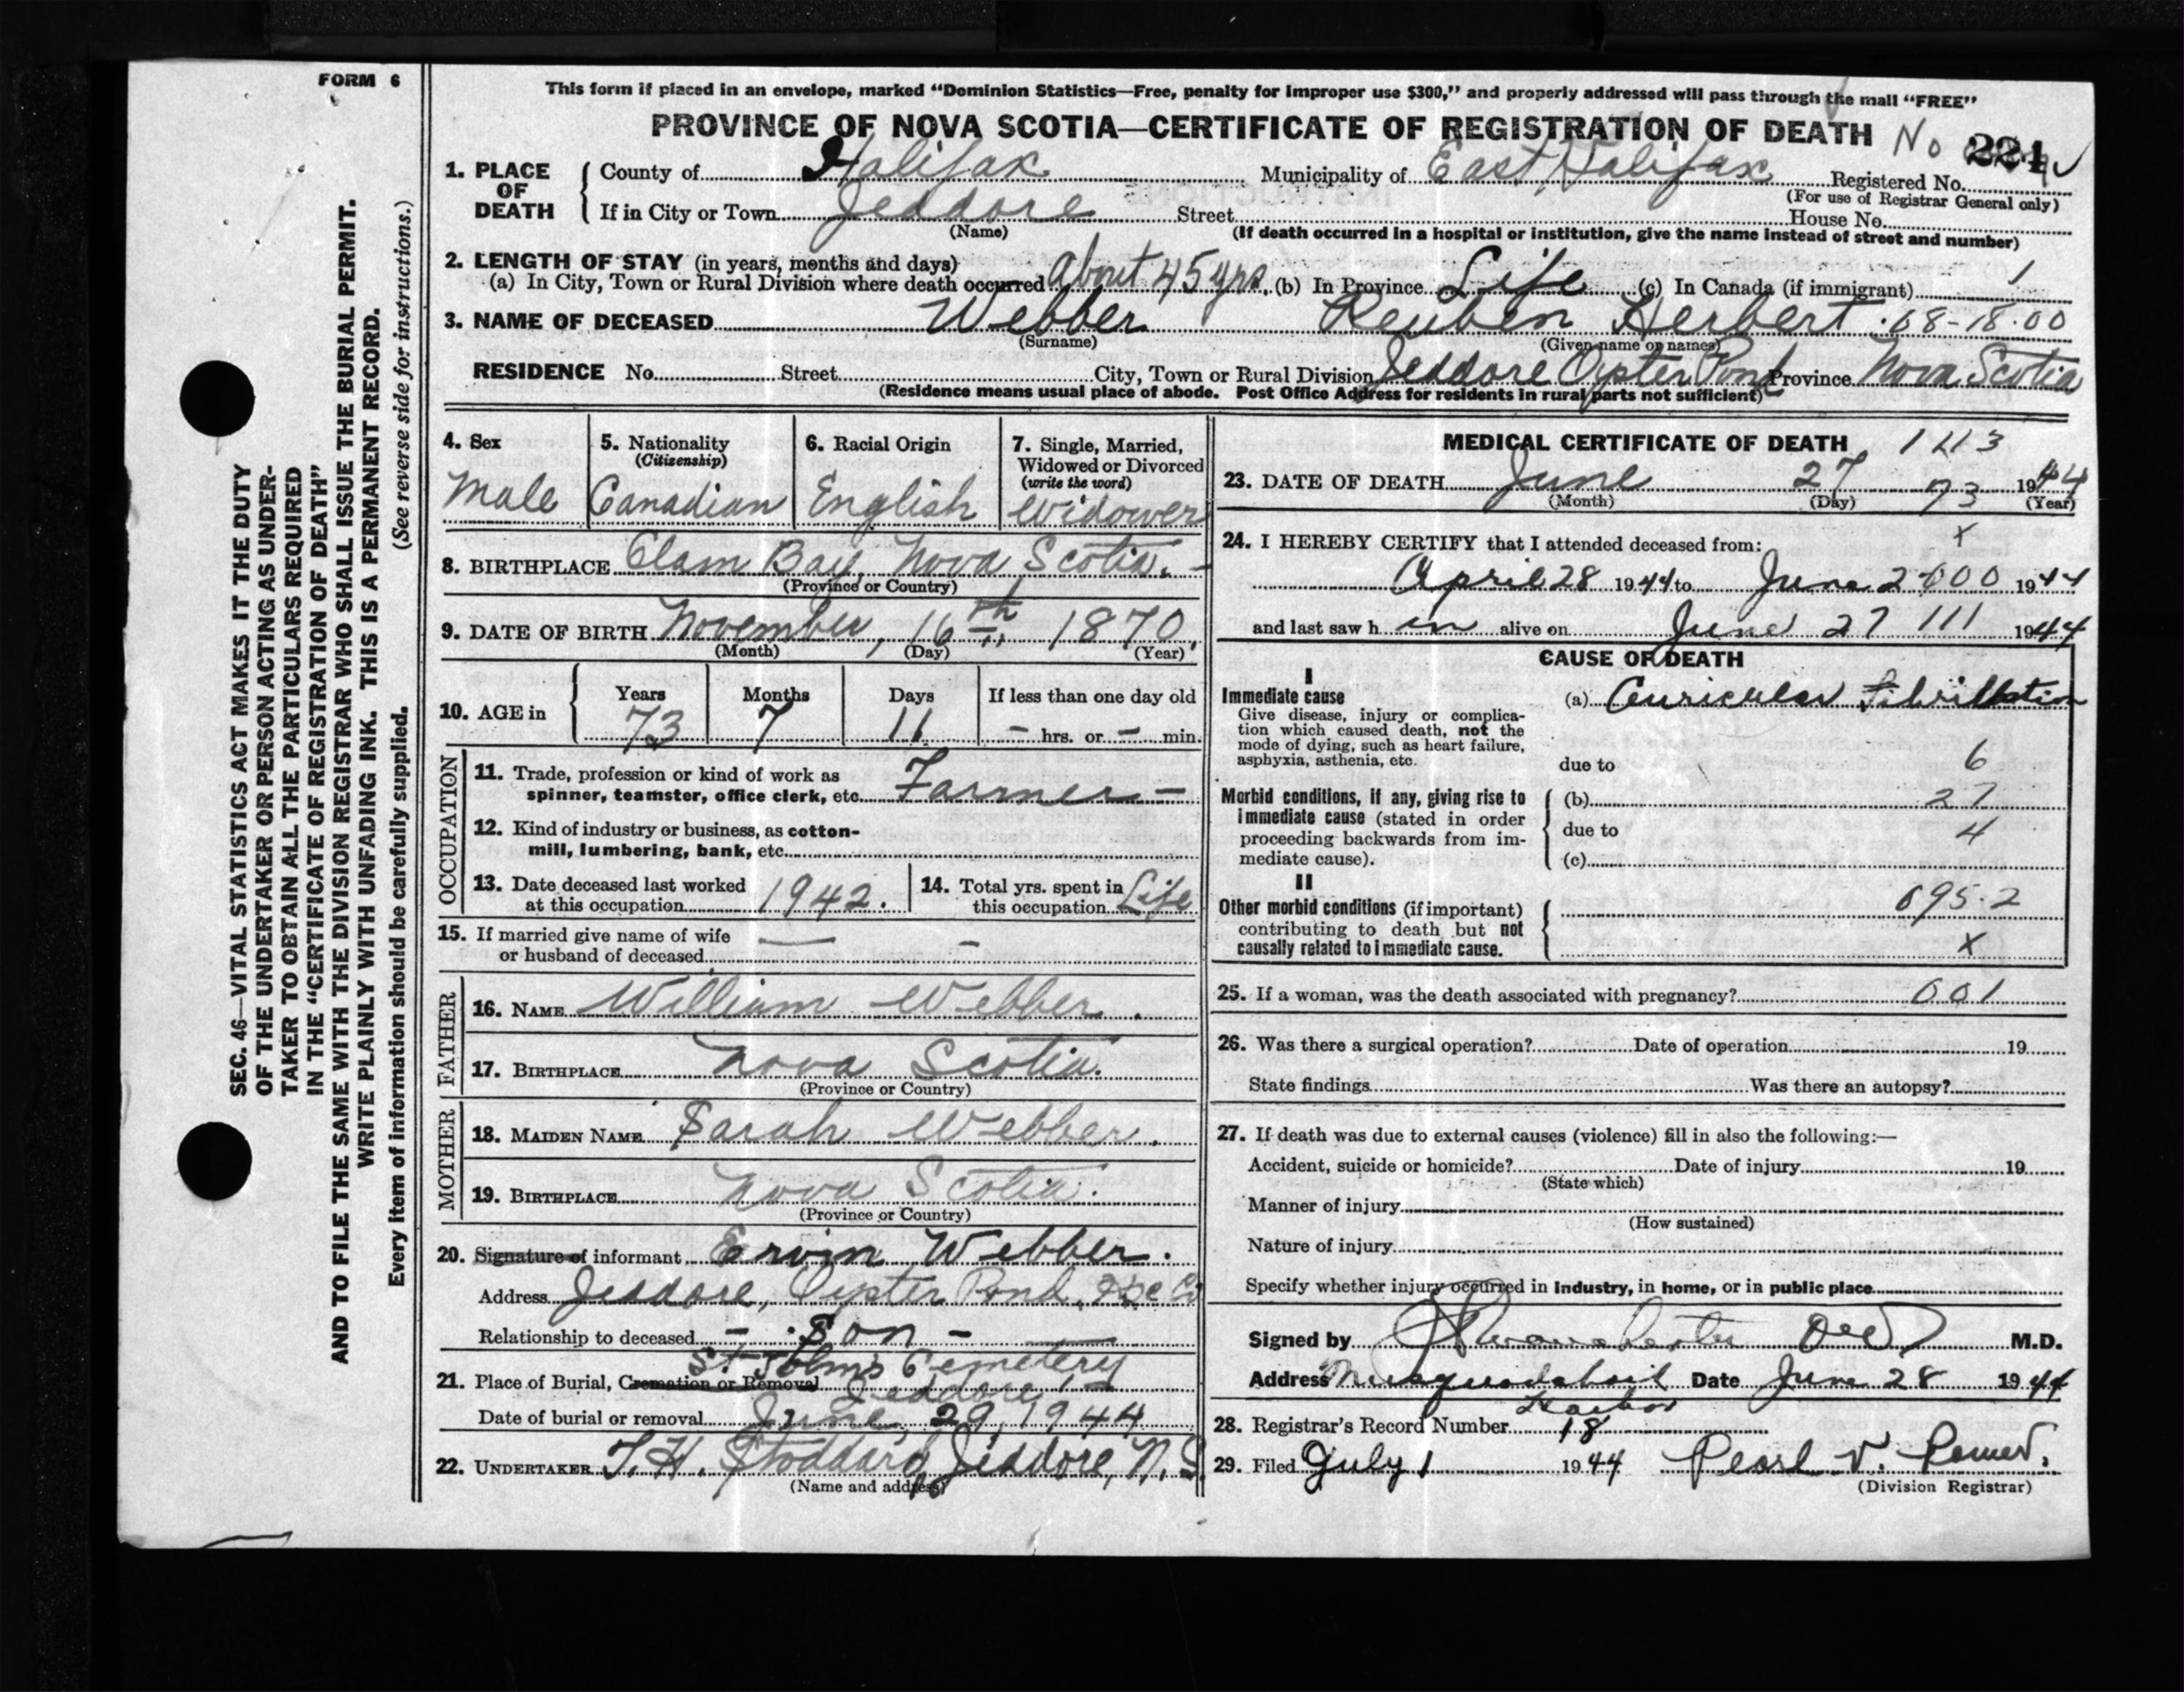 FORM 6
SEC. 46—VITAL STATISTICS ACT MAKES IT THE DUTY
OF THE UNDERTAKER OR PERSON ACTING AS UNDER-
TAKER TO OBTAIN ALL THE PARTICULARS REQUIRED
IN THE "CERTIFICATE OF REGISTRATION OF DEATH"
AND TO FILE THE SAME WITH THE DIVISION REGISTRAR WHO SHALL ISSUE THE BURIAL PERMIT.
WRITE PLAINLY WITH UNFADING INK. THIS IS A PERMANENT RECORD.
Every item of information should be carefully supplied. (See reverse side for instructions.)
This form if placed in an envelope, marked "Dominion Statistics—Free, penalty for improper use $300," and properly addressed will pass through the mail "FREE"
PROVINCE OF NOVA SCOTIA—CERTIFICATE OF REGISTRATION OF DEATH No 221
1. PLACE OF DEATH County of Halifax Municipality of East Halifax Registered No.
(For use of Registrar General only)
If in City or Town Jeddore Street House No.
(Name) (If death occurred in a hospital or institution, give the name instead of street and number)
2. LENGTH OF STAY (in years, months and days)
(a) In City, Town or Rural Division where death occurred About 45 yrs. (b) In Province Life (c) In Canada (if immigrant) 1
3. NAME OF DECEASED Webber Reuben Herbert 68-18.00
(Surname) (Given name or names)
RESIDENCE No. Street City, Town or Rural Division Jeddore Oyster Pond Province Nova Scotia
(Residence means usual place of abode. Post Office Address for residents in rural parts not sufficient)
4. Sex 5. Nationality (Citizenship) 6. Racial Origin 7. Single, Married, Widowed or Divorced (write the word)
Male Canadian English Widower
8. BIRTHPLACE Clam Bay, Nova Scotia.
(Province or Country)
9. DATE OF BIRTH November, 16th 1870
(Month) (Day) (Year)
10. AGE in Years Months Days If less than one day old
73 7 11 - hrs. or - min.
OCCUPATION
11. Trade, profession or kind of work as
spinner, teamster, office clerk, etc. Farmer -
12. Kind of industry or business, as cotton-
mill, lumbering, bank, etc.
13. Date deceased last worked
at this occupation 1942. 14. Total yrs. spent in
this occupation Life
15. If married give name of wife
or husband of deceased
FATHER
16. NAME William Webber.
17. BIRTHPLACE Nova Scotia.
(Province or Country)
MOTHER
18. MAIDEN NAME Sarah Webber.
19. BIRTHPLACE Nova Scotia.
(Province or Country)
20. Signature of informant Ervin Webber.
Address Jeddore, Oyster Pond, Hfx Co
Relationship to deceased - Son -
21. Place of Burial, Cremation or Removal St. John's Cemetery
Jeddore
Date of burial or removal June 29, 1944
22. UNDERTAKER T. H. Stoddard, Jeddore, N.S.
(Name and address)
MEDICAL CERTIFICATE OF DEATH 143
23. DATE OF DEATH June 27 73 1944
(Month) (Day) (Year)
x
24. I HEREBY CERTIFY that I attended deceased from:
April 28 1944 to June 2 000 1944
and last saw h im alive on June 27 111 1944
CAUSE OF DEATH
I
Immediate cause
Give disease, injury or complica-
tion which caused death, not the
mode of dying, such as heart failure,
asphyxia, asthenia, etc.
(a) Auricular Fibrillation
due to 6
Morbid conditions, if any, giving rise to
immediate cause (stated in order
proceeding backwards from im-
mediate cause).
(b) 27
due to 4
(c)
II
Other morbid conditions (if important)
contributing to death but not
causally related to immediate cause.
095.2
x
25. If a woman, was the death associated with pregnancy? 001
26. Was there a surgical operation? Date of operation 19
State findings Was there an autopsy?
27. If death was due to external causes (violence) fill in also the following:—
Accident, suicide or homicide? Date of injury 19
(State which)
Manner of injury
(How sustained)
Nature of injury
Specify whether injury occurred in industry, in home, or in public place
Signed by M.D.
Address Musquodoboit Harbor Date June 28 1944
28. Registrar's Record Number 18
29. Filed July 1 1944 Pearl V.
(Division Registrar)